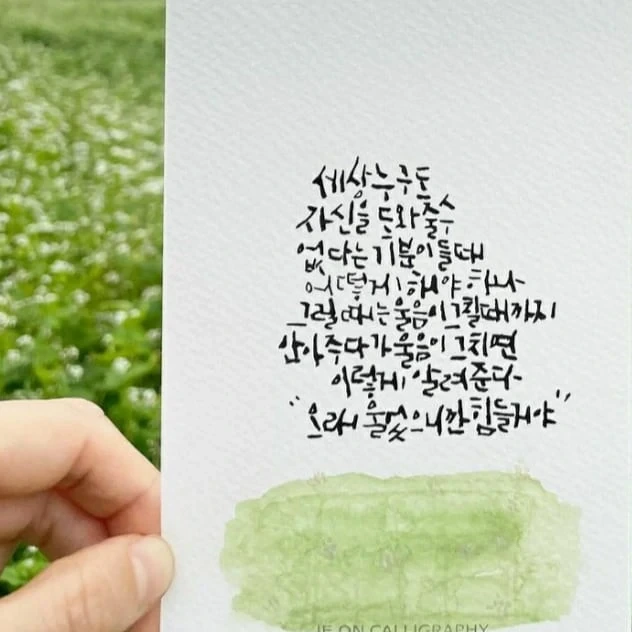 세상 누구도
자신을 도와줄수
없다는 기분이 들때
어떻게 해야 하나
그럴때는 울음이 그칠때까지
안아주다가 울음이 그치면
이렇게 알려준다
"오래 울었으니깐 힘들거야"
JE ON CALLIGRAPHY